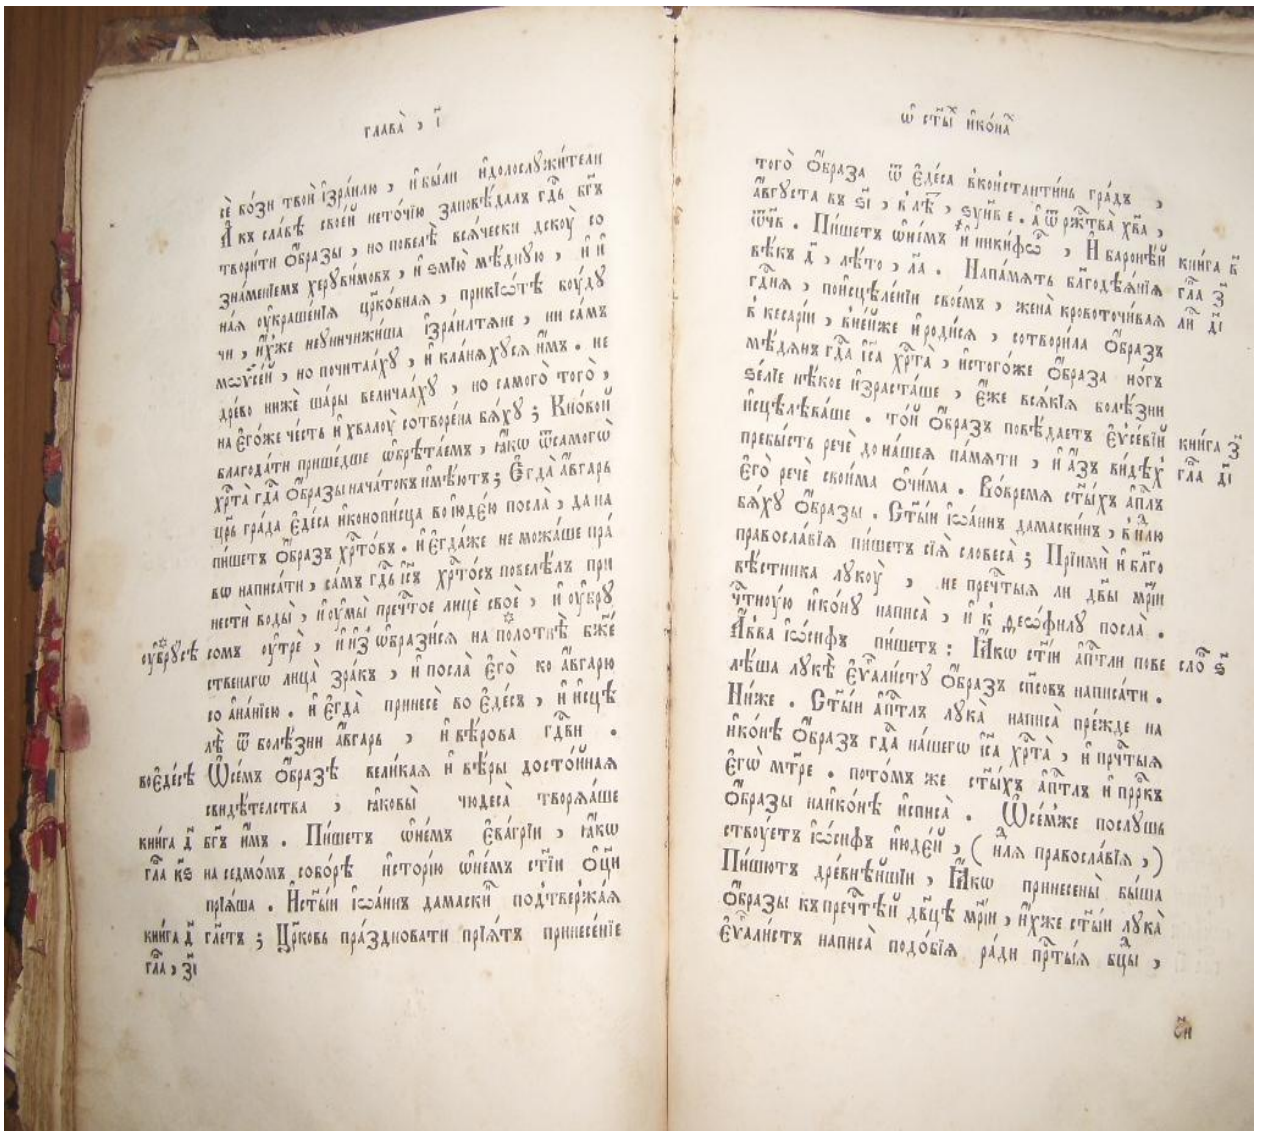 глава̀ , і҃
сѐ бо́зи твоѝ і҆зра́илю , и҆ бы́ли и҆долослꙋжи́тели
А҆ къ сла́вѣ свое́й нето́чїю заповѣ́далъ гдⷭ҇ь бг҃ъ
твори́ти ѻ҆́бразы , но повелѣ̀ вся́чески дскоу̀ со
зна́менїемъ херꙋви́мовъ , и҆ ѕмїю̀ мѣ́днꙋю , и҆ и҆
на́я оу҆краше́нїя цр҃ко́вная , прикїѡ́тѣ боу́дꙋ
чи , и҆̀хже неꙋничижи́ша і҆зра́илтяне , ни са́мъ
мѡѷсе́й , но почита́ахꙋ , и҆ кла́няхꙋся и҆̀мъ . не
дре́во нижѐ ша́ры велича́ахꙋ , но самого̀ того̀ ,
на є҆го́же че́сть и҆ хвалоу̀ сотворе́на бя́хꙋ ; Кно́вой
благода́ти прише́дше ѡ҆брѣта́емъ , ꙗ҆́кѡ ѿсамогѡ̀
хрⷭ҇та̀ гдⷭ҇а ѻ҆́бразы нача́токъ и҆мѣ́ютъ ; Є҆гда̀ а҆́вгарь
цр҃ь гра́да є҆де́са и҆конопи́сца во і҆юде́ю посла̀ , да на
пи́шетъ ѻ҆́бразъ хрⷭ҇то́въ . и҆ є҆гда́же не можа́ше пра́
вѡ написа́ти , са́мъ гдⷭ҇ь і҆и҃съ хрⷭ҇то́съ повелѣ́лъ при
нестѝ воды̀ , и҆ оу҆мы̀ пречⷭ҇тое лицѐ своѐ , и҆ оу҆брꙋ
оу҆брꙋ́сѣ сомъ оу҆трѐ , и҆ и҆з̾ ѡ҆брази́ся на полотнѣ̀ бж҃е́
ственагѡ лица̀ зра́къ , и҆ посла̀ є҆го̀ ко а҆́вгарю
со а҆на́нїею . и҆ є҆гда̀ принесѐ во є҆де́съ , и҆ и҆сцѣ
лѣ̀ ѿ болѣ́зни а҆́вгарь , и҆ вѣ́рова гдⷭ҇ви .
воє҆де́сѣ Ѡ҆се́мъ ѻ҆́бразѣ вели́кая и҆ вѣ́ры досто́йная
свидѣ́телства , ꙗ҆́ковы̀ чюдеса̀ творя́ше
кни́га д҃ бг҃ъ и҆́мъ . Пи́шетъ ѡ҆не́мъ є҆ва́грїи , ꙗ҆́кѡ
гла҃ к҃ѕ на седмо́мъ собо́рѣ и҆сто́рїю ѡ҆не́мъ ст҃і́и ѻ҆ц҃и
прїя́ша . И҆ст҃ы́и і҆ѡа́ннъ дамаски́нъ подтвержа́я
кни́га д҃ гл҃етъ ; Цр҃ковь пра́здновати прїя́тъ принесе́нїе
гла҃ , з҃і
ѡ҆ ст҃ы́хъ и҆ко́нахъ
того̀ ѻ҆́браза ѿ є҆де́са вконстанти́нь гра́дъ ,
а҆́вгꙋста въ ѕ҃і , в лѣ́то , ѕун҃в е . а҆ ѿ ржⷭ҇тва̀ хв҃а ,
ѿч҃в . Пи́шетъ ѡ҆не́мъ и҆ ники́форъ , И҆ баро́нїй кни́га в҃
вѣ́къ д҃ , лѣ́то , л҃а . Напа́мять благодѣя́нїя гла҃ з҃
гдⷭ҇ня , поисцѣле́нїи свое́мъ , жена̀ кровоточи́вая ли҃ д҃і
в кеса́рїи , вне́йже и҆ роди́ся , сотвори́ла ѻ҆́бразъ
мѣ́дянъ гдⷭ҇а і҆и҃са хрⷭ҇та̀ , и҆стого́же ѻ҆́браза но́гъ
ѕе́лїе нѣ́кое и҆зраста́ше , є҆́же вся́кїя болѣ́зни
и҆сцѣлѣва́ше . то́й ѻ҆́бразъ повѣ́даетъ є҆ѵсе́вїй кни́га з҃
пребы́сть речѐ дона́шея па́мяти , и҆ а҆́зъ ви́дѣхъ гла҃ д҃і
є҆го̀ речѐ свои́ма ѻ҆чи́ма . Во́время ст҃ы́хъ а҆пⷭ҇лъ
бя́хꙋ ѻ҆́бразы . Ст҃ы́и і҆ѡа́ннъ дамаски́нъ , в недѣ́лю
правосла́вїя пи́шетъ сїя̀ словеса̀ ; Прїимѝ и҆ бл҃го
вѣ́стника лꙋкоу̀ , не пречⷭ҇тыя ли дв҃ы мр҃і́и
чⷭ҇тноу́ю и҆ко́нꙋ написа̀ , и҆ к̾ ѳео́филꙋ посла̀ .
А҆́вва і҆ѡ́сифъ пи́шетъ : Ꙗ҆́кѡ ст҃і́и а҆пⷭ҇тли пове сло́ ѕ҃
лѣ́ша лꙋкѣ̀ є҆ѵⷢ҇алистꙋ ѻ҆́бразъ сп҃совъ написа́ти .
Ни́же . Ст҃ы́и а҆пⷭ҇тлъ лꙋка̀ написа̀ пре́жде на
и҆ко́нѣ ѻ҆́бразъ гдⷭ҇а на́шегѡ і҆и҃са хрⷭ҇та̀ , и҆ прчⷭ҇тыя
є҆гѡ̀ мт҃ре . пото́мъ же ст҃ы́хъ а҆пⷭ҇тлъ и҆ прⷪ҇ркъ
ѻ҆́бразы наико́нѣ и҆списа̀ . Ѡ҆се́мже послꙋ́шь
ствоу́етъ і҆ѡ́сифъ и҆юде́й , ( нⷣля правосла́вїя , )
Пи́шютъ древнѣ́йшїи , Ꙗ҆́кѡ принесены̀ бы́ша
ѻ҆́бразы къ пречⷭ҇тѣ́й дв҃цѣ мр҃і́и , и҆̀хже ст҃ы́и лꙋка̀
є҆ѵⷢ҇алистъ написа̀ подо́бїя ра́ди прⷭ҇тыя бц҃ы ,